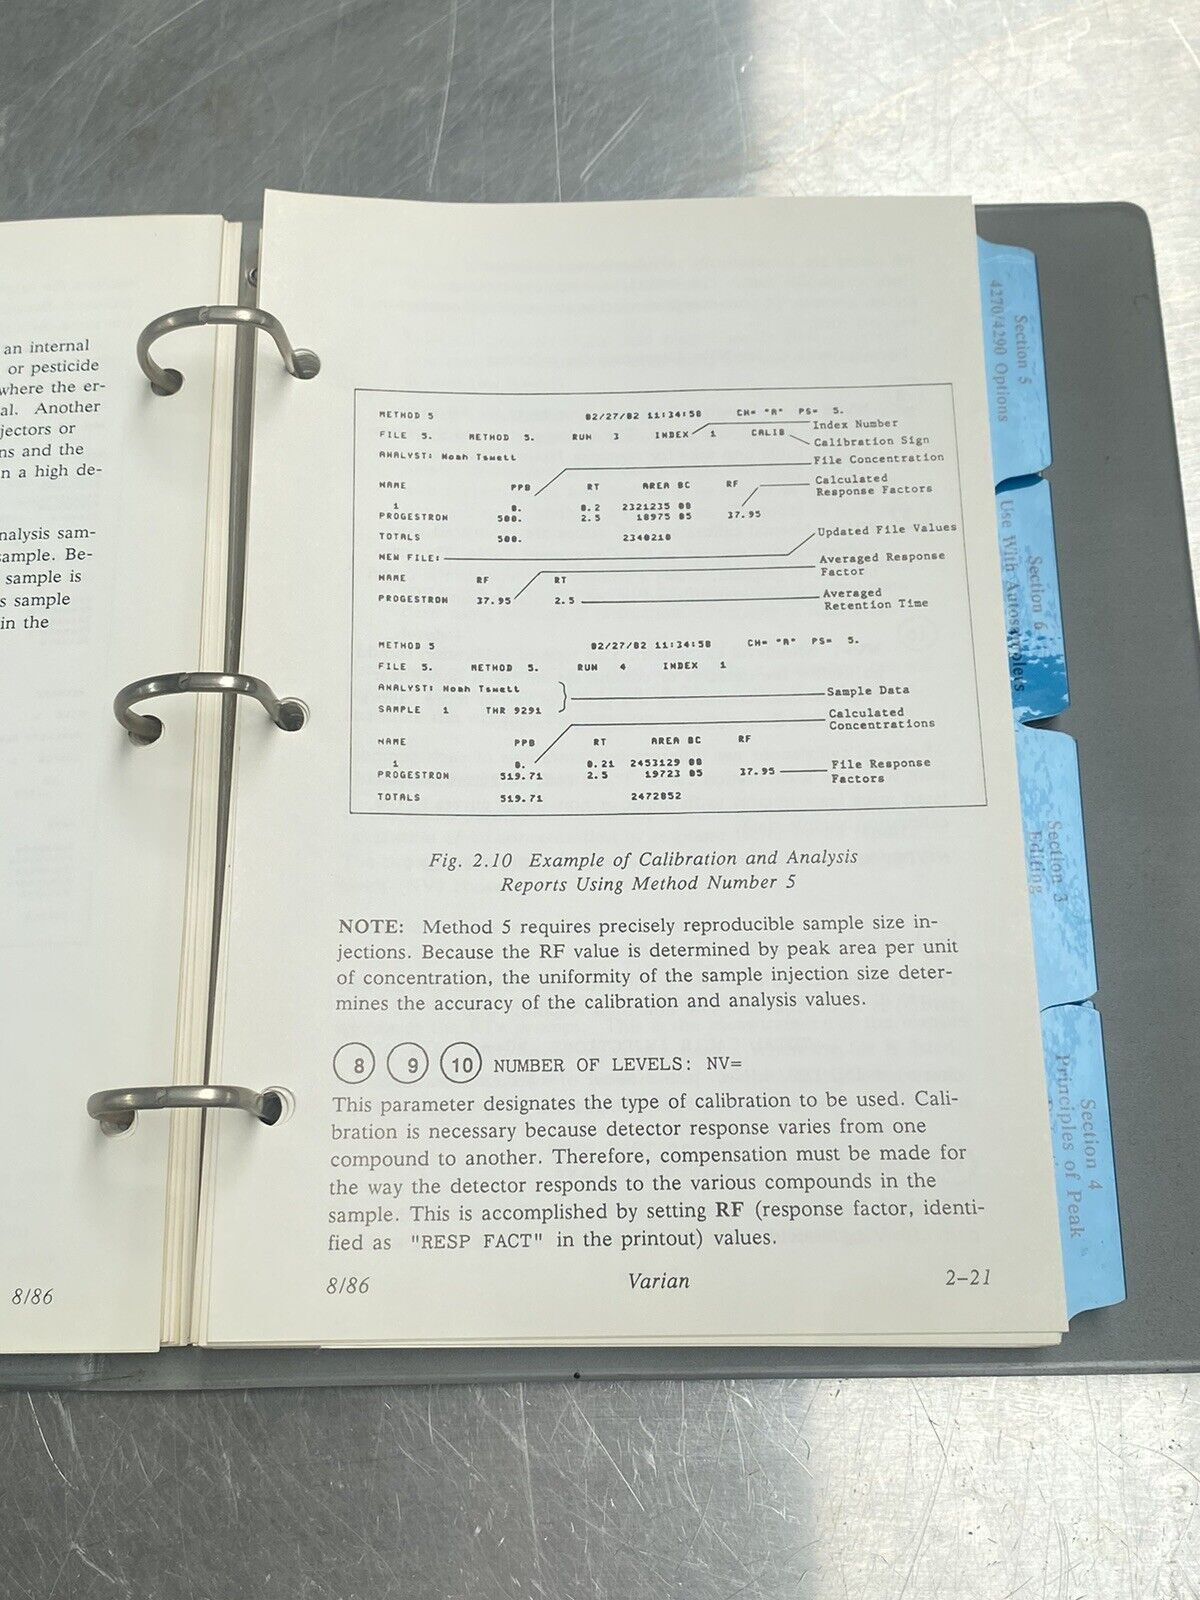 an internal
or pesticide
where the er-
al. Another
jectors or
ns and the
n a high de-
nalysis sam-
sample. Be-
sample is
s sample
in the
8/86
METHOD 5 02/27/82 11:34:58 CH= "A" PS= 5.
Index Number
FILE 5. METHOD 5. RUN 3 INDEX 1 CALIB
Calibration Sign
ANALYST: Noah Tswett
File Concentration
NAME PPB RT AREA BC RF
Calculated
Response Factors
1 0. 0.2 2321235 00
PROGESTRON 500. 2.5 18975 05 37.95
TOTALS 500. 2340210
Updated File Values
NEW FILE:
Averaged Response
Factor
NAME RF RT
PROGESTRON 37.95 2.5
Averaged
Retention Time
METHOD 5 02/27/82 11:34:58 CH= "A" PS= 5.
FILE 5. METHOD 5. RUN 4 INDEX 1
ANALYST: Noah Tswett
Sample Data
SAMPLE 1 THR 9291
Calculated
Concentrations
NAME PPB RT AREA BC RF
1 0. 0.21 2453129 00
PROGESTRON 519.71 2.5 19723 05 37.95
File Response
Factors
TOTALS 519.71 2472852
Fig. 2.10 Example of Calibration and Analysis
Reports Using Method Number 5
NOTE: Method 5 requires precisely reproducible sample size in-
jections. Because the RF value is determined by peak area per unit
of concentration, the uniformity of the sample injection size deter-
mines the accuracy of the calibration and analysis values.
8 9 10 NUMBER OF LEVELS: NV=
This parameter designates the type of calibration to be used. Cali-
bration is necessary because detector response varies from one
compound to another. Therefore, compensation must be made for
the way the detector responds to the various compounds in the
sample. This is accomplished by setting RF (response factor, identi-
fied as "RESP FACT" in the printout) values.
8/86 Varian 2-21
Section 5
4270/4290 Options
Section 6
Use With Autosamplers
Section 3
Editing
Section 4
Principles of Peak